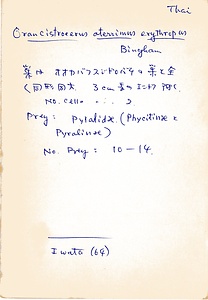 Thai
Orancistrocerus aterrimus erythropus
Bingham
巣は オオカバフスジドロバチの巣と全
(同形同大 3cm
No. cells
Prey : Pyralidae (Phycitinae &
Pyralinae)
No. Prey : 10-14.
Iwata (64)